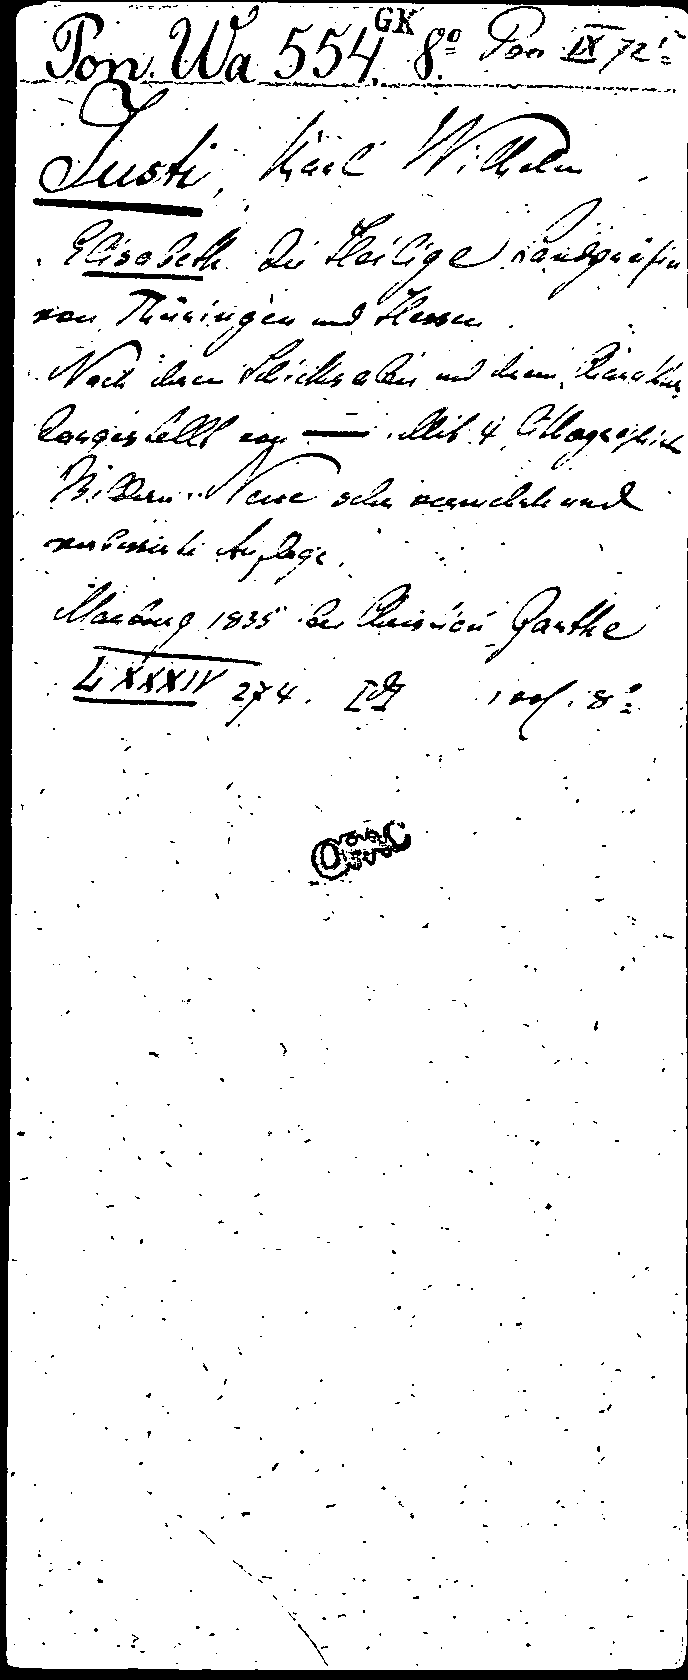 Pon. Wa 554, GK 8.° Pon IX 72.
Justi, Karl Wilhelm
Elisabeth die Heilige Landgräfin
von Thüringen und Hessen.
Nach ihren Schicksalen und ihrem Charakter
dargestellt von — . Mit 4 lithographisch
Bildern. Neue sehr vermehrte und
verbesserte Auflage.
Marburg 1835 bei Christian Garthe
LXXXIV 274. 1 vol. 8°